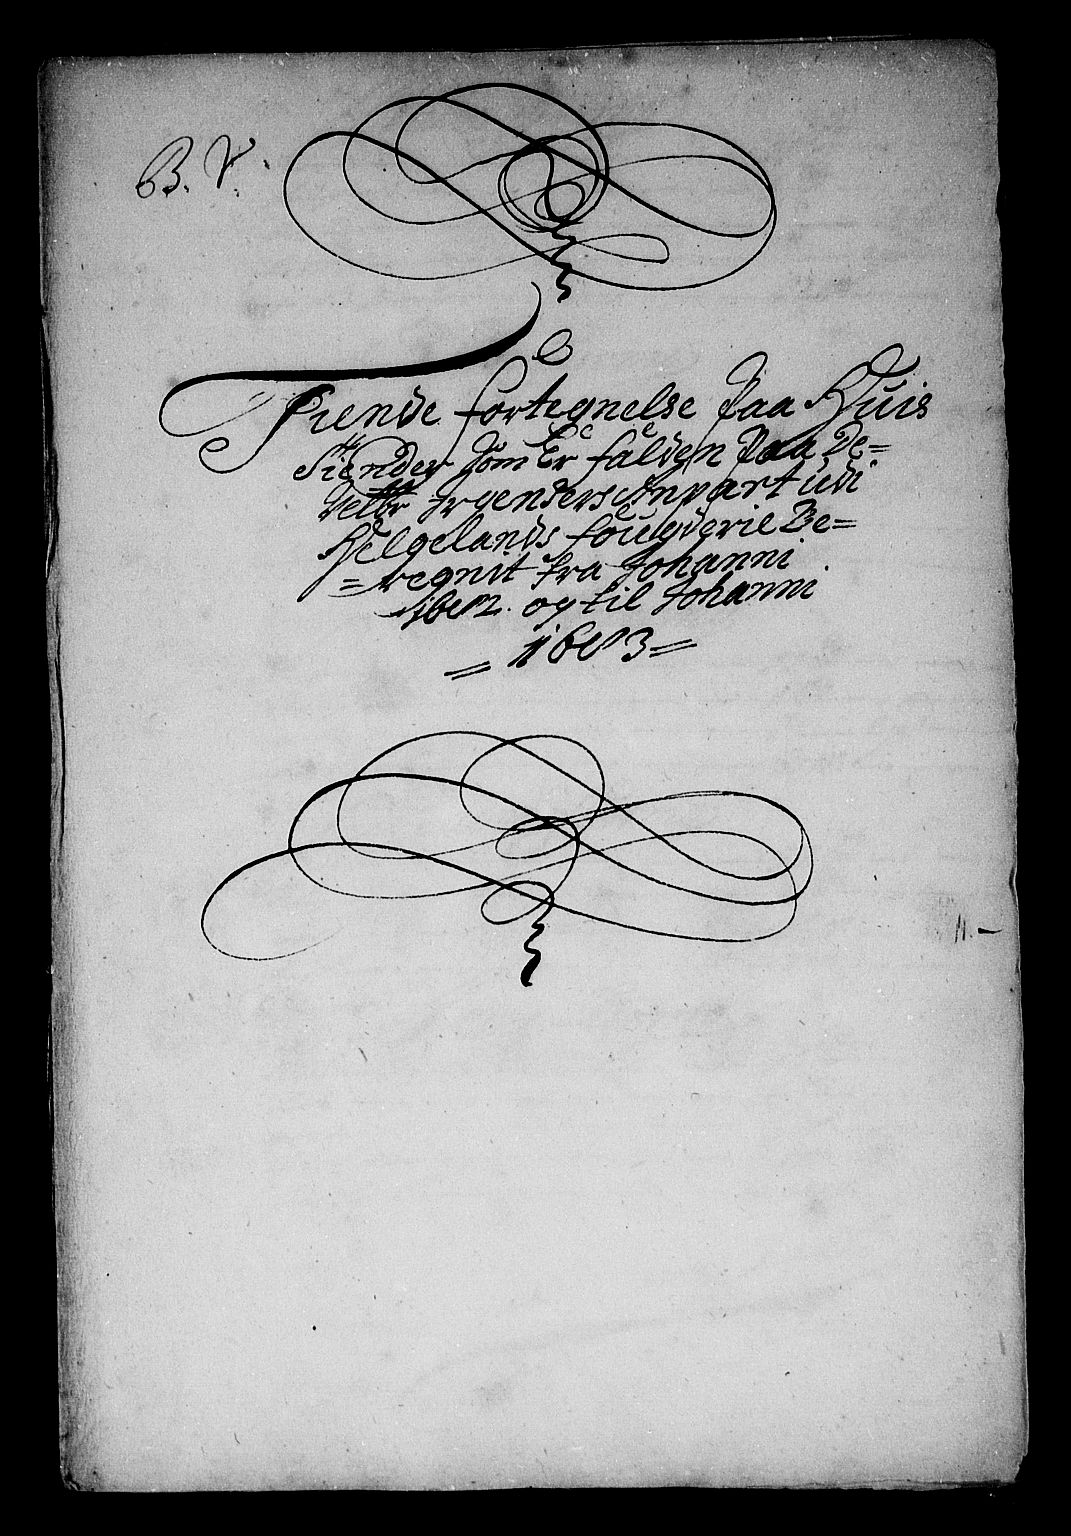 B. V.
Tiende Fortegnelse Paa Huis
Tiender Som Er falden Paa De-
Jrgenders Anpart udi
Helgelands fougderie Be-
=regnit fra Johanni
1682. og til Johanni
= 1683 =